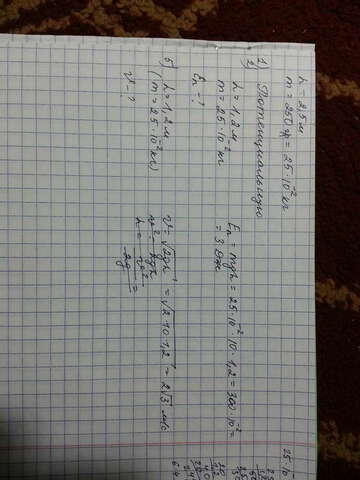 h = 2,5 м
m = 250 гр = 25·10⁻² кг
1) Потенциальную
h = 1,2 м
m = 25·10⁻² кг
Eп - ?
Eп = mgh = 25·10⁻²·10·1,2 = 300·10⁻² =
= 3 Дж
5) h = 1,2 м
(m = 25·10⁻² кг)
v - ?
v = √2gh = √2·10·1,2 = 2√3 м/с
v² = 2gh
h = v²/2g =
25·10